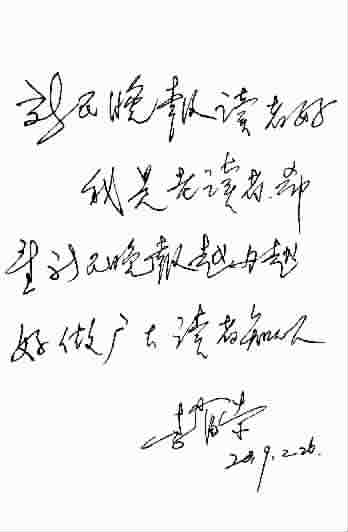 新民晚報读者好
我是老读者.希
望新民晚報越办越
好做广大读者知心人
李富荣
2009.2.26.